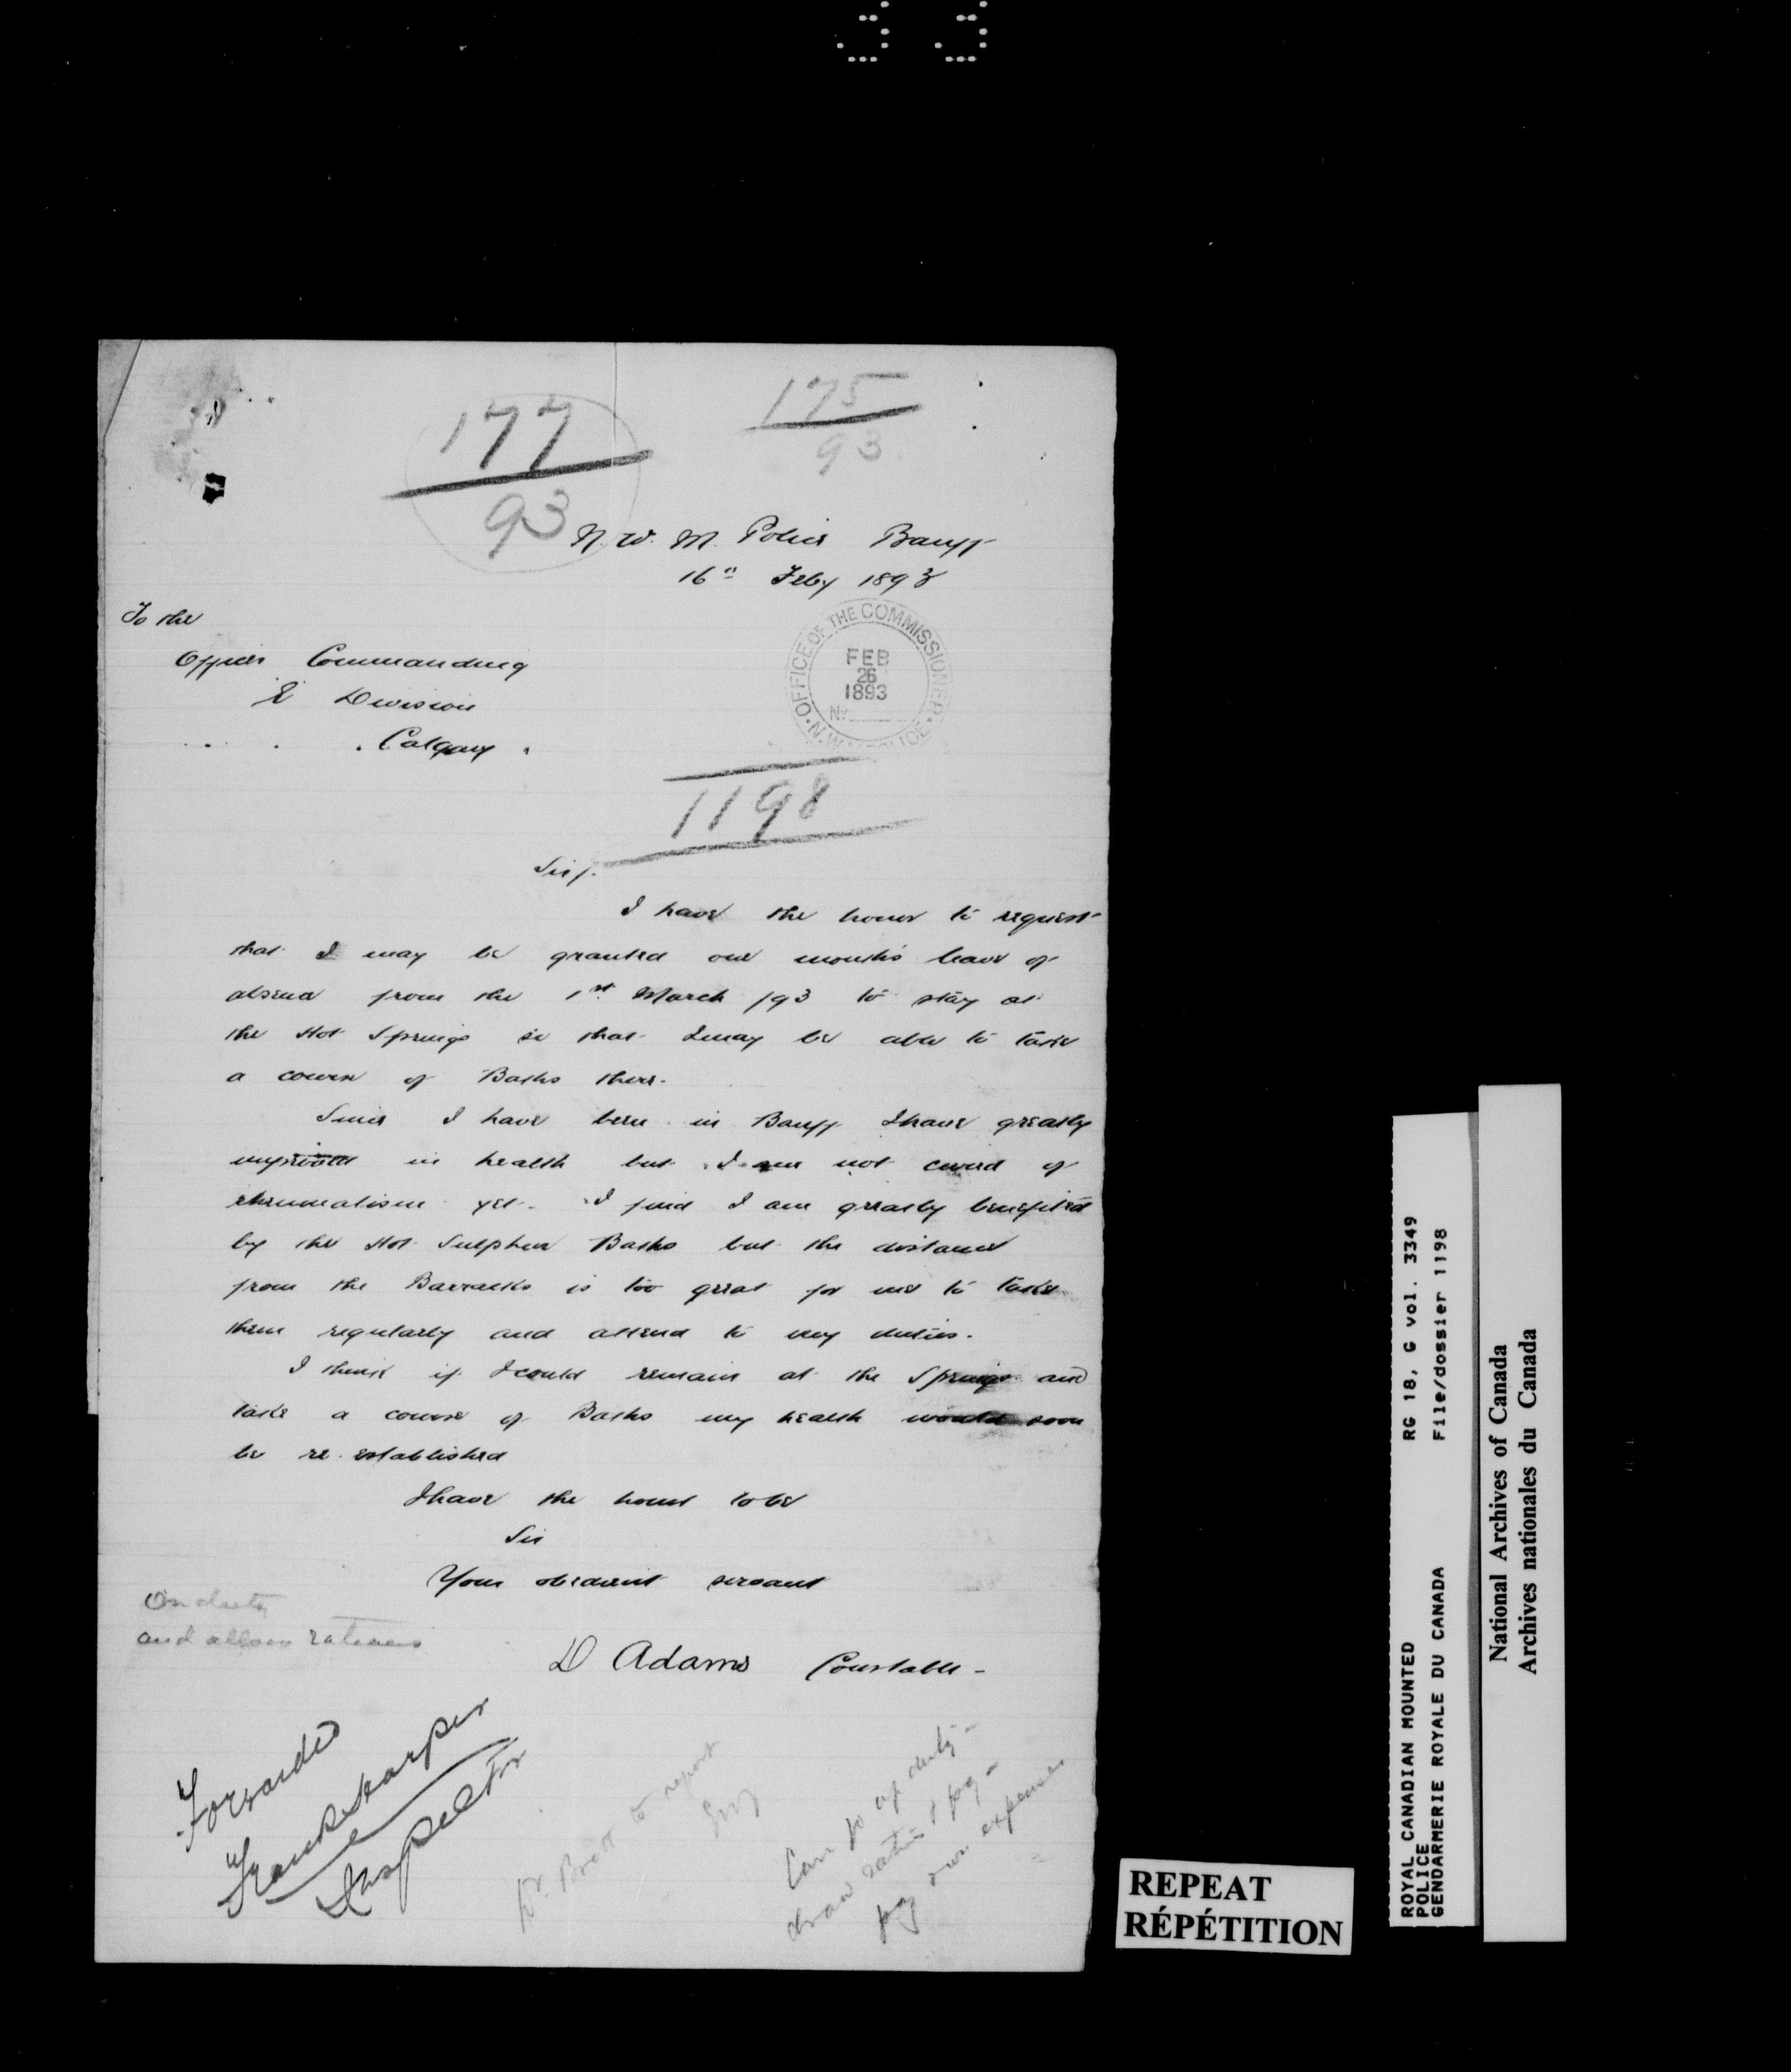 33
177
93
175
93
N. W. M. Police Banff
16th Feby 1893
To the
Officer Commanding
E Division
Calgary.
OFFICE OF THE COMMISSIONER
FEB
26
1893
No
N.W.M. POLICE
1198
Sir/.
I have the honor to request
that I may be granted one month's leave of
absence from the 1st March /93 to stay at
the Hot Springs so that I may be able to take
a course of Baths there.
Since I have been in Banff I have greatly
improved in health but I am not cured of
rheumatism yet. I find I am greatly benefited
by the Hot Sulphur Baths but the distance
from the Barracks is too great for me to take
them regularly and attend to my duties.
I think if I could remain at the Springs and
take a course of Baths my health would soon
be re-established
I have the honor to be
Sir
Your obedient servant
D Adams Constable-
On duty
and allow rations
Forwarded
Frank Harper
Inspector
Dr. Brett to report
Can go off duty-
draw rations & pay-
pay own expenses
REPEAT
RÉPÉTITION
ROYAL CANADIAN MOUNTED
POLICE
GENDARMERIE ROYALE DU CANADA
RG 18, G vol. 3349
File/dossier 1198
National Archives of Canada
Archives nationales du Canada